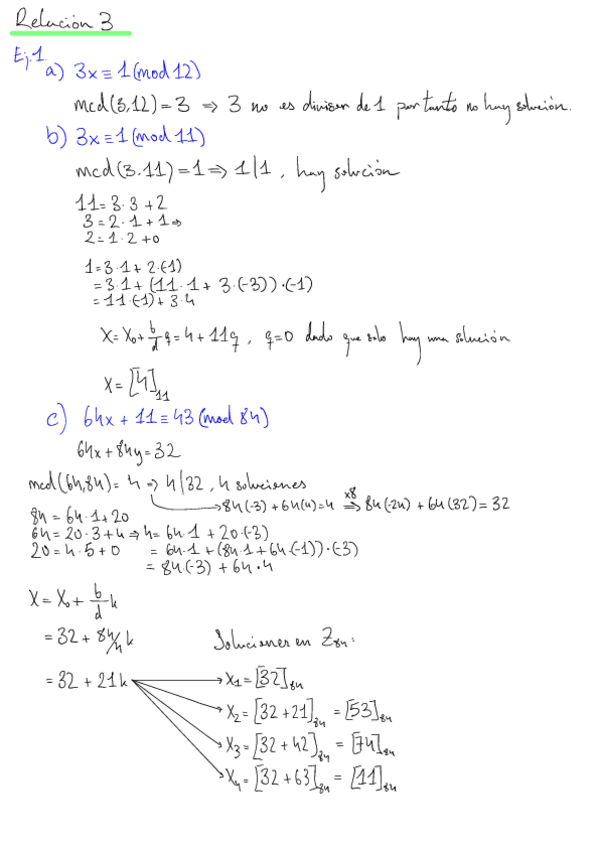 Relación 3
Ej.1
a) 3x ≡ 1 (mod 12)
mcd(3,12) = 3 ⇒ 3 no es divisor de 1 por tanto no hay solución.
b) 3x ≡ 1 (mod 11)
mcd(3.11) = 1 ⇒ 1|1 , hay solución
11 = 3·3 + 2
3 = 2·1 + 1 ⇒
2 = 1·2 + 0
1 = 3·1 + 2·(-1)
= 3·1 + (11·1 + 3·(-3))·(-1)
= 11·(-1) + 3·4
x = x₀ + b/d q = 4 + 11q , q=0 dado que solo hay una solución
x = [4]₁₁
c) 64x + 11 ≡ 43 (mod 84)
64x + 84y = 32
mcd(64,84) = 4 ⇒ 4|32 , 4 soluciones
→ 84(-3) + 64(4) = 4 ⇒ˣ⁸ 84(-24) + 64(32) = 32
84 = 64·1 + 20
64 = 20·3 + 4 ⇒ 4 = 64·1 + 20·(-3)
20 = 4·5 + 0 = 64·1 + (84·1 + 64·(-1))·(-3)
= 84·(-3) + 64·4
x = x₀ + b/d k
= 32 + 84/4 k
Soluciones en Z₈₄:
= 32 + 21k
x₁ = [32]₈₄
x₂ = [32 + 21]₈₄ = [53]₈₄
x₃ = [32 + 42]₈₄ = [74]₈₄
x₄ = [32 + 63]₈₄ = [11]₈₄